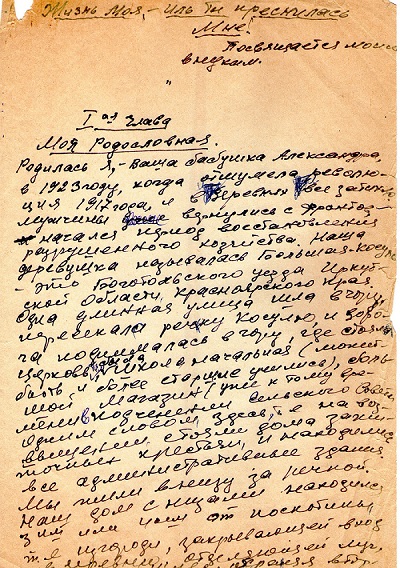 Жизнь Моя, - Иль ты приснилась
Мне.
Посвящается моим
внукам.
"
I ая глава
Моя Родословная.
Родилась Я, - Ваша бабушка Александра,
в 1923 году, когда отшумела револю-
ция 1917 года, и в деревнях все
мужчины вернулись с фронтов -
начался период восстановления
разрушенного хозяйства. Наша
деревушка называлась Большая-Косуль
- это Боготольского уезда Иркут-
ской Области, Красноярского края.
Одна длинная улица шла в гору,
пересекала речку Косулю, и
поднималась в гору, где стояла
церковь, была школа начальная (может
быть и более старшие учились), боль-
шой магазин (уже к тому вре-
мени подчинении Сельского Совета
Одним словом здесь, т.е на воз-
вышении стояли дома зажи-
точных крестьян, и находились
все административные здания
Мы жили внизу за речкой.
Наш дом с находился
от поскотины,
т.е изгороди, закрывающей вход
в отделяющей